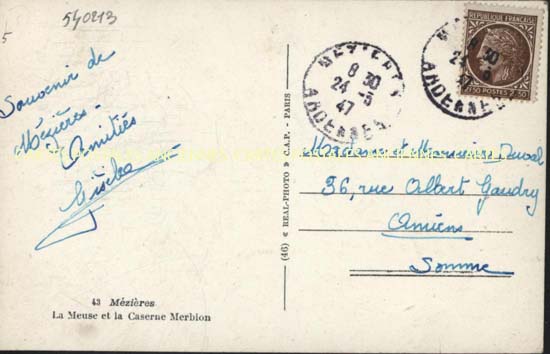 540213
5
Souvenir de
Mézières.
Amitiés
Gisèle
43 Mézières
La Meuse et la Caserne Merbion
(46) « REAL-PHOTO » C.A.P. - PARIS
MEZIERES
8 30
24 - 5
47
ARDENNES
8 30
24 - 5
47
ARDENNES
REPUBLIQUE FRANÇAISE
2F50 POSTES 2F50
Madame et Monsieur Duval
36, rue Albert Gaudry
Amiens
Somme